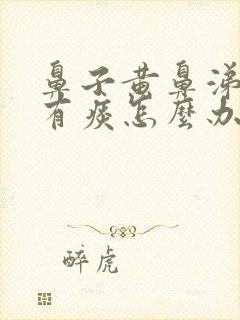 鼻子黄鼻涕
有痰怎麽办
醉虎